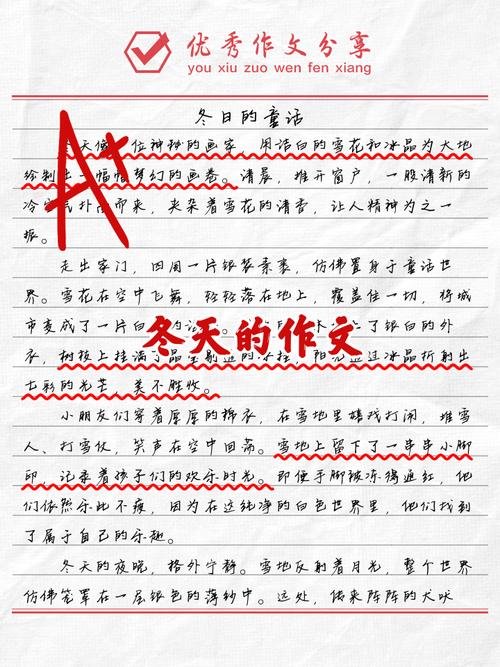 优秀作文分享
you xiu zuo wen fen xiang
冬日的童话
A+
天像 位神秘的画家，用洁白的雪花和冰晶为大地
绘制 一幅幅梦幻的画卷。清晨，推开窗户，一股清新的
冷空气扑面而来，夹杂着雪花的清香，让人精神为之一
振。
走出家门，四周一片银装素裹，仿佛置身于童话世
界。雪花在空中飞舞，轻轻落在地上，覆盖住一切，将城
市变成了一片白 了银白的外
冬天的作文
衣，树枝上挂满了晶莹剔透的冰挂，阳光透过冰晶折射出
七彩的光芒，美不胜收。
小朋友们穿着厚厚的棉衣，在雪地里嬉戏打闹，堆雪
人、打雪仗，笑声在空中回荡。雪地上留下了一串串小脚
印，记录着孩子们的欢乐时光。即使手脚被冻得通红，他
们依然乐此不疲，因为在这纯净的白色世界里，他们找到
了属于自己的乐趣。
冬天的夜晚，格外宁静。雪地反射着月光，整个世界
仿佛笼罩在一层银色的薄纱中。远处，传来阵阵的犬吠